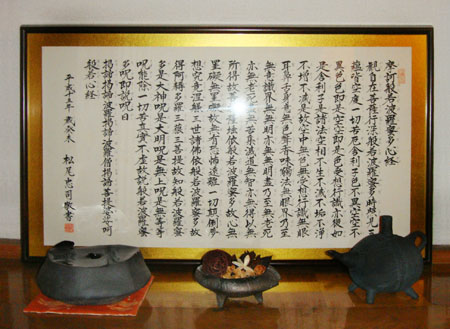 摩訶般若波羅蜜多心経
観自在菩薩行深般若波羅蜜多時照見五
蘊皆空度一切苦厄舎利子色不異空空不
異色色即是空空即是色受想行識亦復如
是舎利子是諸法空相不生不滅不垢不浄
不増不減是故空中無色無受想行識無眼
耳鼻舌身意無色声香味触法無眼界乃至
無意識界無無明亦無無明盡乃至無老死
亦無老死盡無苦集滅道無智亦無得以無
所得故菩提薩埵依般若波羅蜜多故心無
罣礙無罣礙故無有恐怖遠離一切顛倒夢
想究竟涅槃三世諸佛依般若波羅蜜多故
得阿耨多羅三藐三菩提故知般若波羅蜜
多是大神呪是大明呪是無上呪是無等等
呪能除一切苦真實不虚故説般若波羅蜜
多呪即説呪曰
揭諦揭諦 波羅揭諦 波羅僧揭諦 菩提薩婆訶
般若心経
平成十五年 歳癸未 松尾恵司敬書